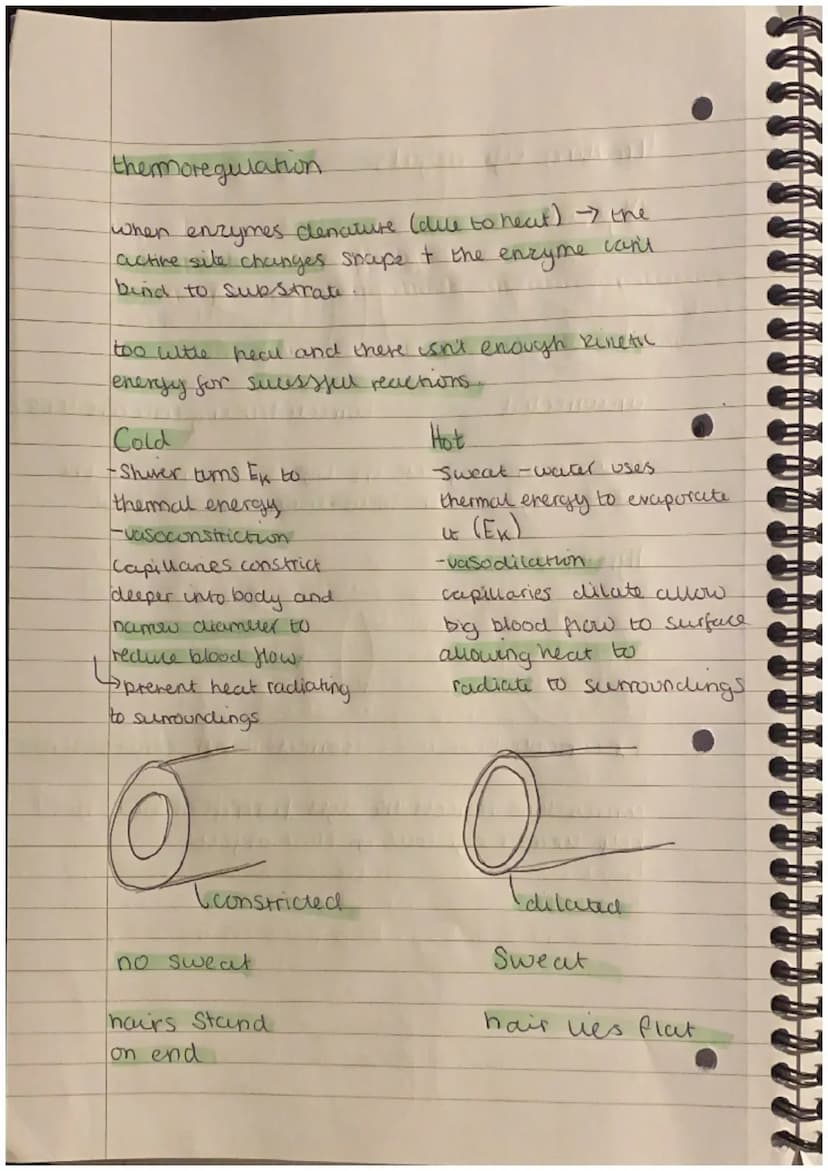 thermoregulation
when enzymes denature (due to heat) → the
active site changes shape + the enzyme can't
bind to substrate.
too little heat and there isn't enough kinetic
energy for sucessful reactions.
Cold
-Shiver turns Ek to
thermal energy,
-vasoconstriction
capillaries constrict
deeper into body and
narrow diameter to
reduce blood flow.
→prevent heat radiating
to surroundings
constricted
no sweat
hairs Stand
on end
Hot
-sweat - water uses
thermal energy to evaporate
it (Ek)
-vasodilation
capillaries dilate allow
big blood flow to surface
allowing heat to
radiate to surroundings
dilated
Sweat
hair lies flat